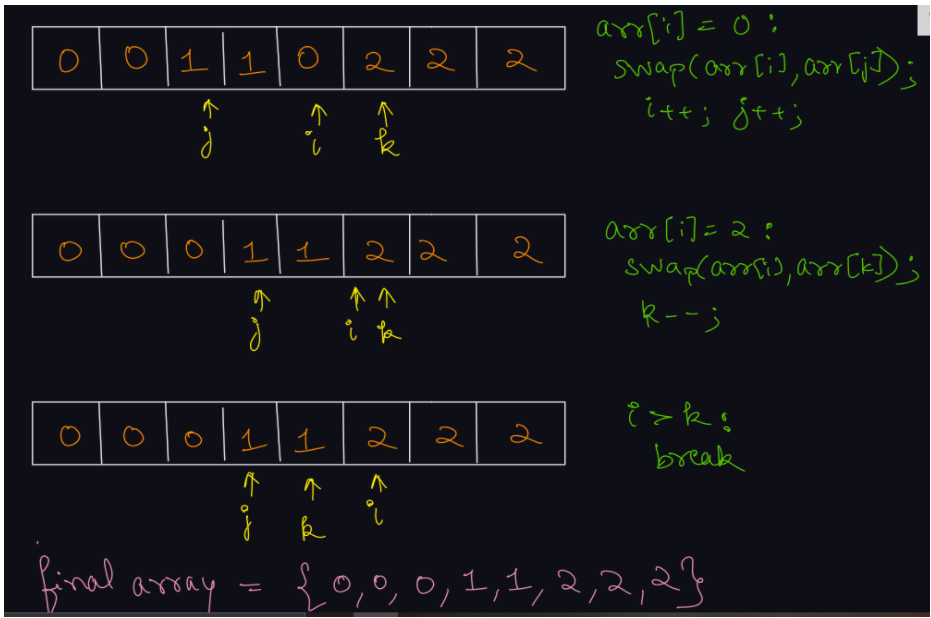 0 0 1 1 0 2 2 2
j i k
arr[i] = 0 :
swap(arr[i], arr[j]);
i++; j++;
0 0 0 1 1 2 2 2
j i k
arr[i] = 2 :
swap(arr[i], arr[k]);
k--;
0 0 0 1 1 2 2 2
j k i
i > k :
break
final array = {0,0,0,1,1,2,2,2}